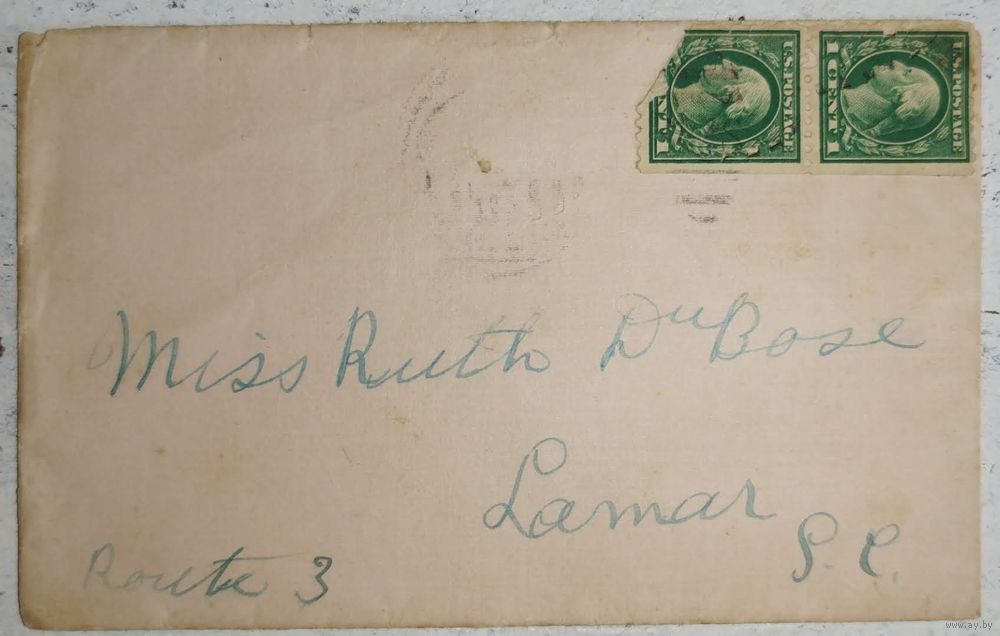 U.S. POSTAGE
1 CENT 1
U.S. POSTAGE
1 CENT 1
Miss Ruth DuBose
Lamar
S. C.
Route 3
www.ay.by